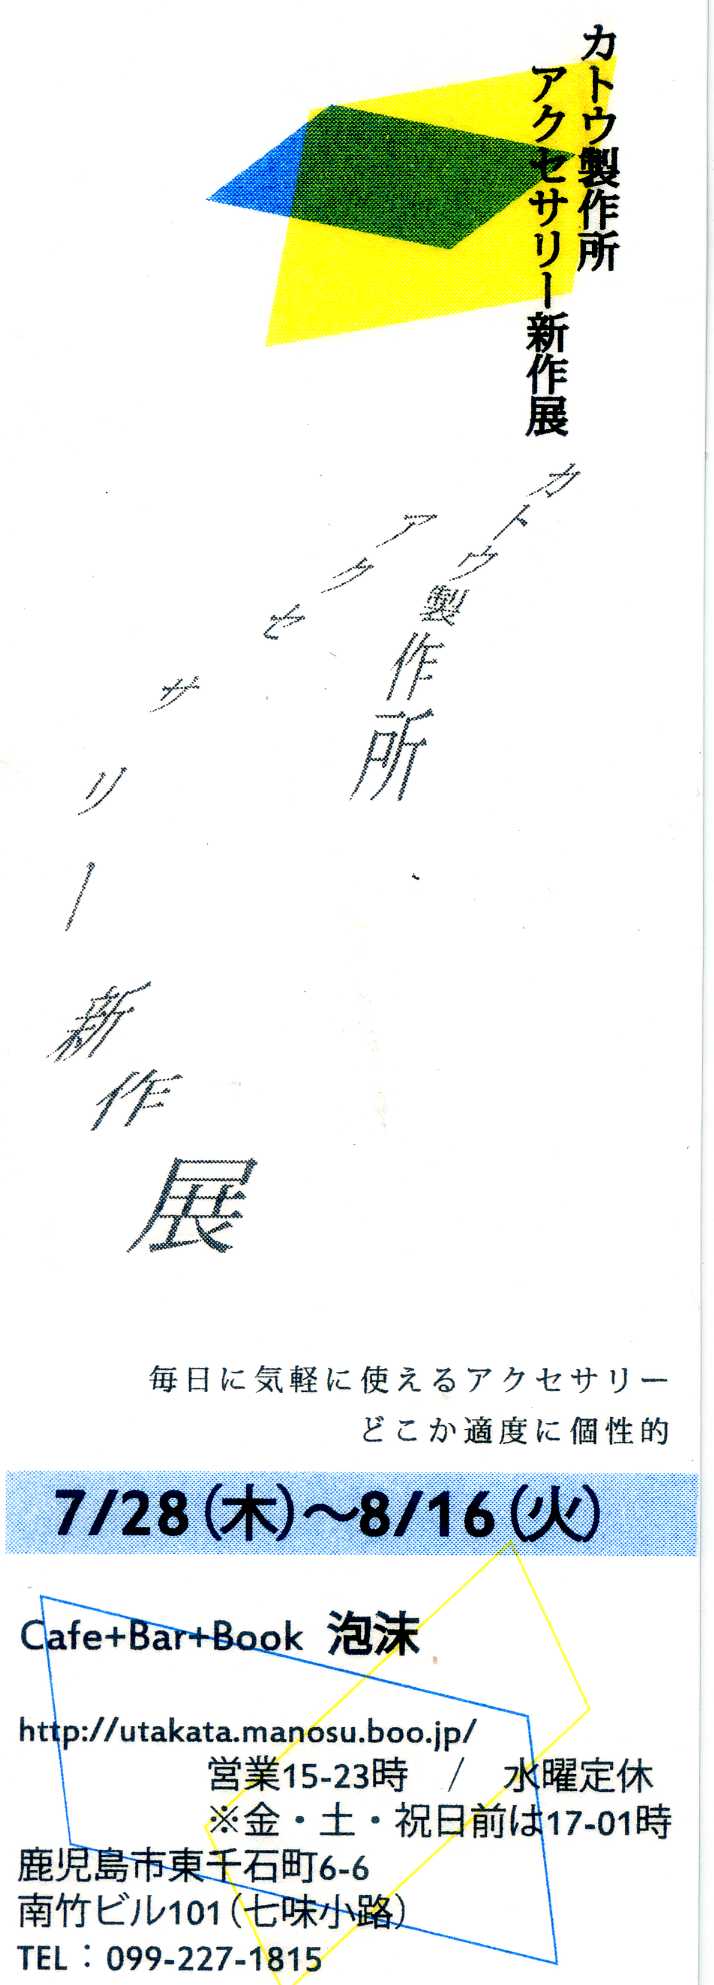 カトウ製作所
アクセサリー新作展
カトウ製作所
アクセサリー新作展
毎日に気軽に使えるアクセサリー
どこか適度に個性的
7/28(木)〜8/16(火)
Cafe+Bar+Book 泡沫
http://utakata.manosu.boo.jp/
営業15-23時 / 水曜定休
※金・土・祝日前は17-01時
鹿児島市東千石町6-6
南竹ビル101(七味小路)
TEL:099-227-1815